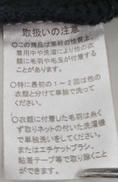 取扱いの注意
○この商品は素材の性質上、
着用中や洗濯により他の衣
類に毛羽や毛玉が付着する
ことがあります。
○特に最初の1～2回は他の
衣類と分けて単独で洗って
ください。
○衣類に付着した毛羽は糸く
ず取りネット付の洗濯機
で単独洗いをしてください。
またはエチケットブラシ、
粘着テープ等で取り除くこ
とができます。